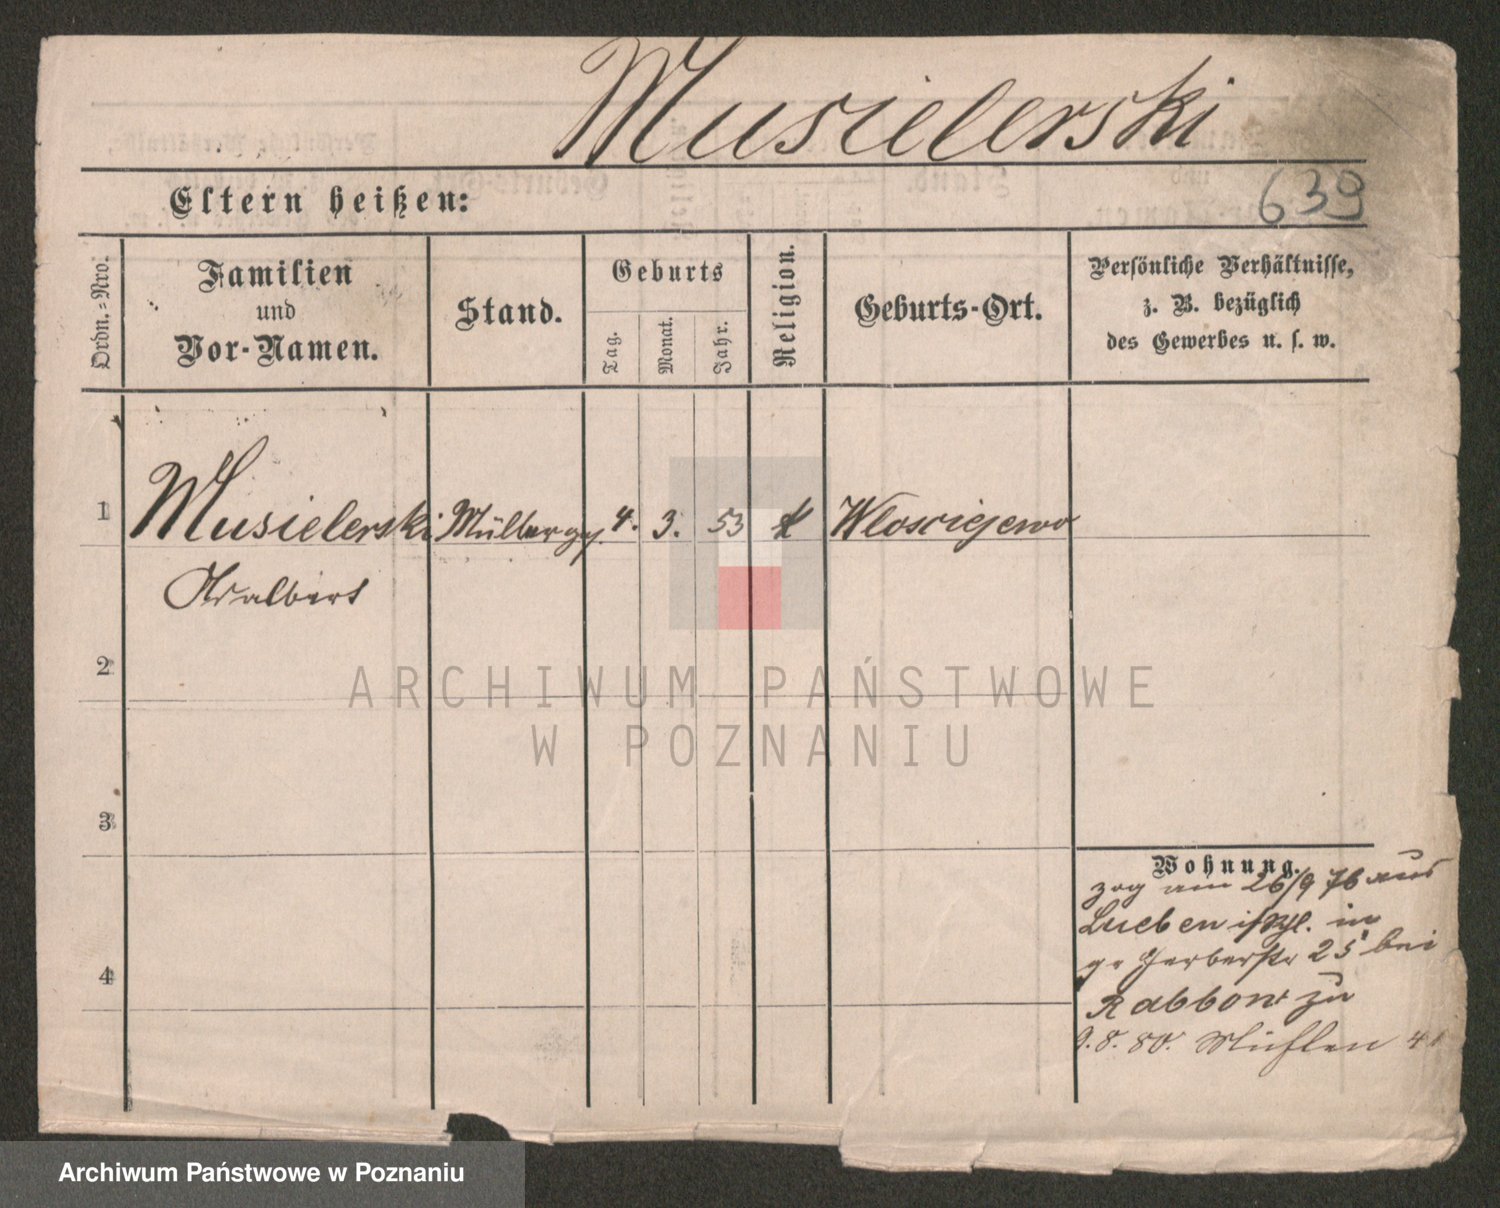 Musielerski
Eltern heißen:
639
Ordn.-Nro.
Familien
und
Vor-Namen.
Stand.
Geburts
Tag.
Monat.
Jahr.
Religion.
Geburts-Ort.
Persönliche Verhältnisse,
z. B. bezüglich
des Gewerbes u. s. w.
1
Musielerski
Müllerges.
4.
3.
53
k
Wlosciejewo
Adalbert
2
3
4
Wohnung.
zog am 26/9 76 aus
Lueben in
gr Gerberstr 25 bei
Rabbow zu
9.8.80. Mühlen 41
ARCHIWUM PAŃSTWOWE
W POZNANIU
Archiwum Państwowe w Poznaniu